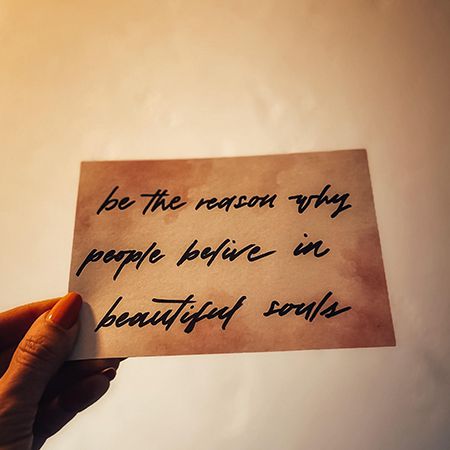 be the reason why
people belive in
beautiful souls